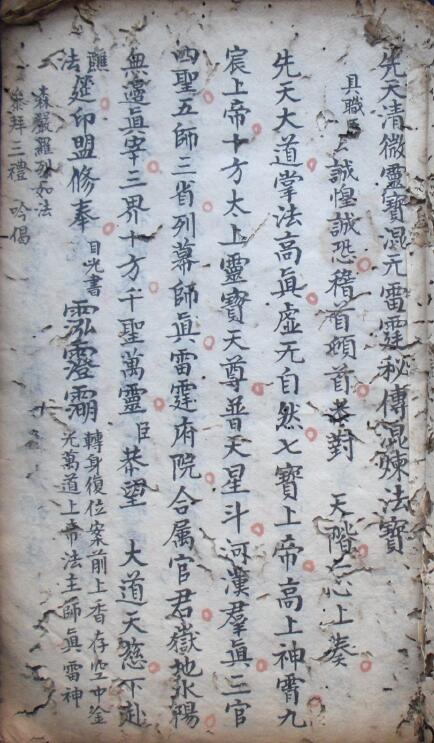 先天清微靈寶混元雷霆秘傳混煉法寶
具職臣 誠惶誠恐稽首頓首恭對 天階 心上奏
先天大道掌法高真虛无自然七寶上帝高上神霄九
宸上帝十方太上靈寶天尊普天星斗河漢羣真三官
四聖五師三省列幕師真雷霆府院合属官君嶽地水陽
無邊真宰三界十方千聖萬靈 臣 恭望 大道天慈下赴
醮筵印盟修奉 目光書 轉身復位案前上香存空中金
光萬道上帝法主師真雷神
法
森嚴羅列如法
參拜三禮 吟偈